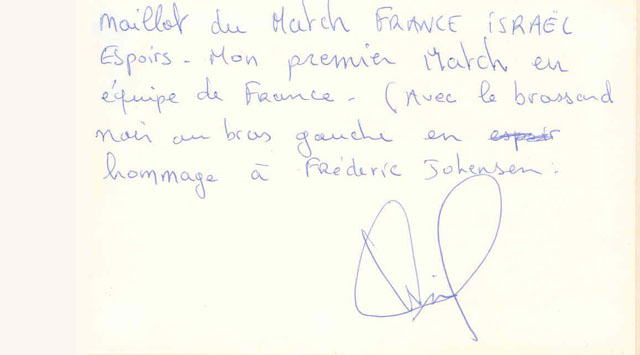 Maillot du Match FRANCE ISRAËL
ESPOIRS - Mon premier Match en
équipe de France - (Avec le brassard
noir au bras gauche en espoir
hommage à Fréderic Johensen.